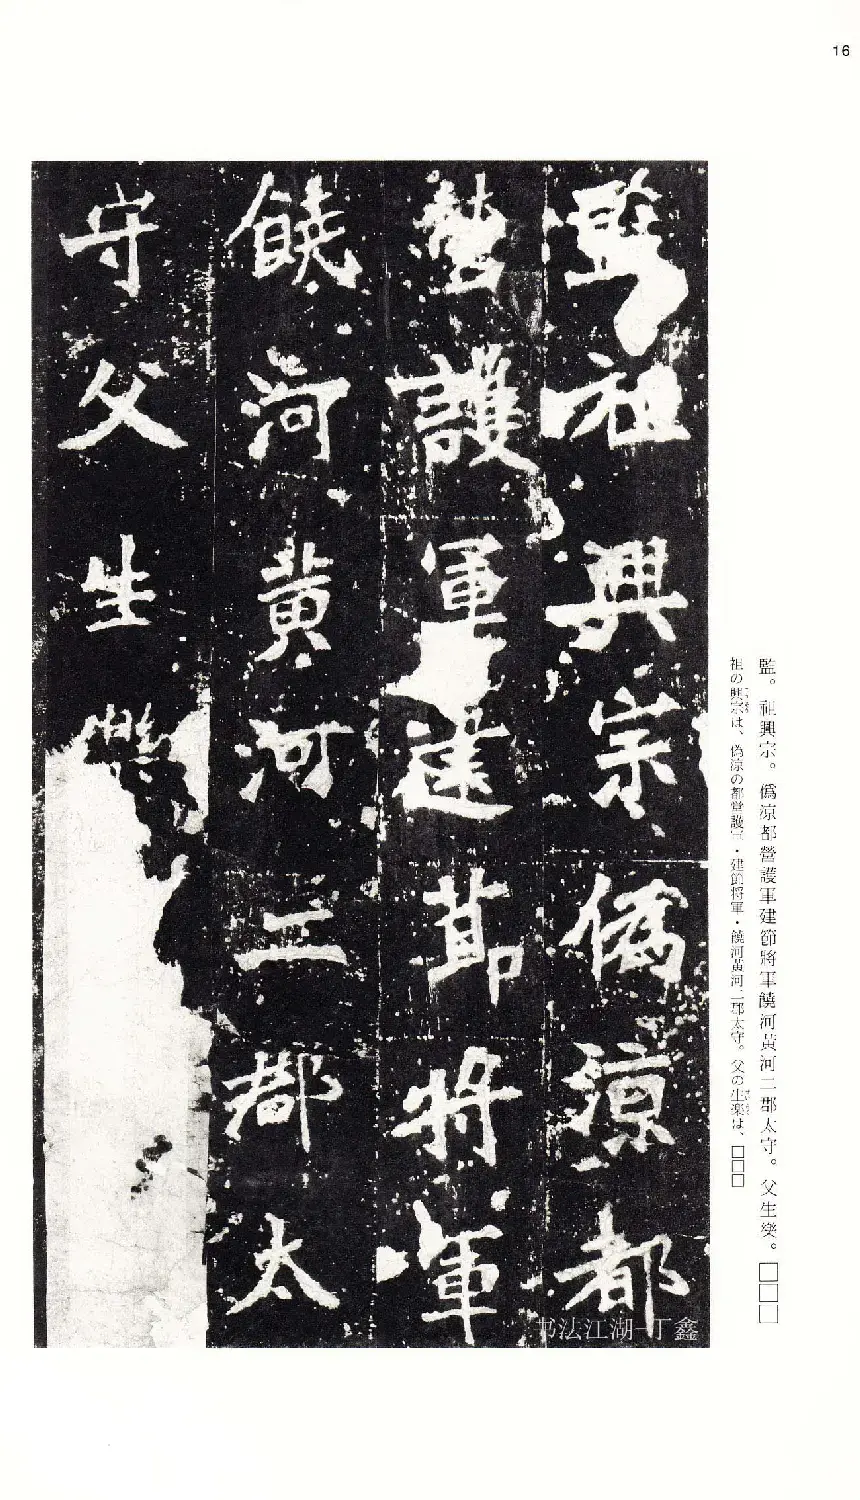 16
監祖興宗僞涼都
營護軍建節將軍
饒河黃河二郡太
守父生樂
監。祖興宗。僞涼都營護軍建節將軍饒河黃河二郡太守。父生樂。□□□
祖の興宗は、偽涼の都営護軍・建節将軍・饒河黄河二郡太守。父の生楽は、□□□
书法江湖-丁鑫